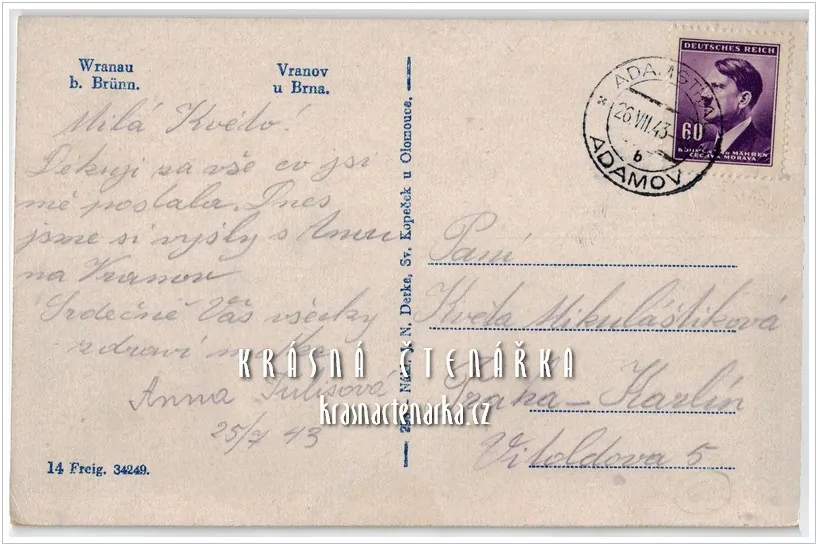 Wranau
b. Brünn.
Vranov
u Brna.
Milá Květo!
Dekuji za vše co jsi
mě poslala. Dnes
jsme si vyšly s
na Vranov
Srdečně Vás všecky
zdraví
Anna
25/7 43
14 Freig. 34249.
Nákl. J. N. Derka, Sv. Kopeček u Olomouce.
DEUTSCHES REICH
60
BÖHMEN UND MÄHREN
ČECHY A MORAVA
ADAMSTHAL
26.VII.43
b
ADAMOV
Paní
Květa Mikuláštiková
Praha - Karlín
Vitoldova 5
KRÁSNÁ ČTENÁŘKA
krasnactenarka.cz